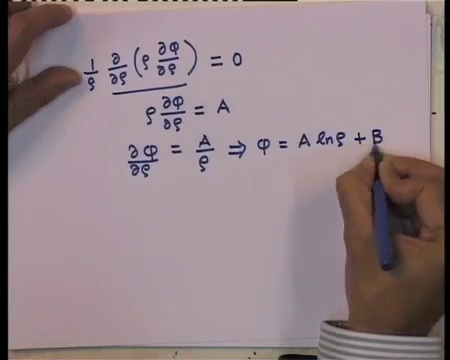 1/ρ ∂/∂ρ (ρ ∂φ/∂ρ) = 0
ρ ∂φ/∂ρ = A
∂φ/∂ρ = A/ρ ⇒ φ = A ln ρ + B